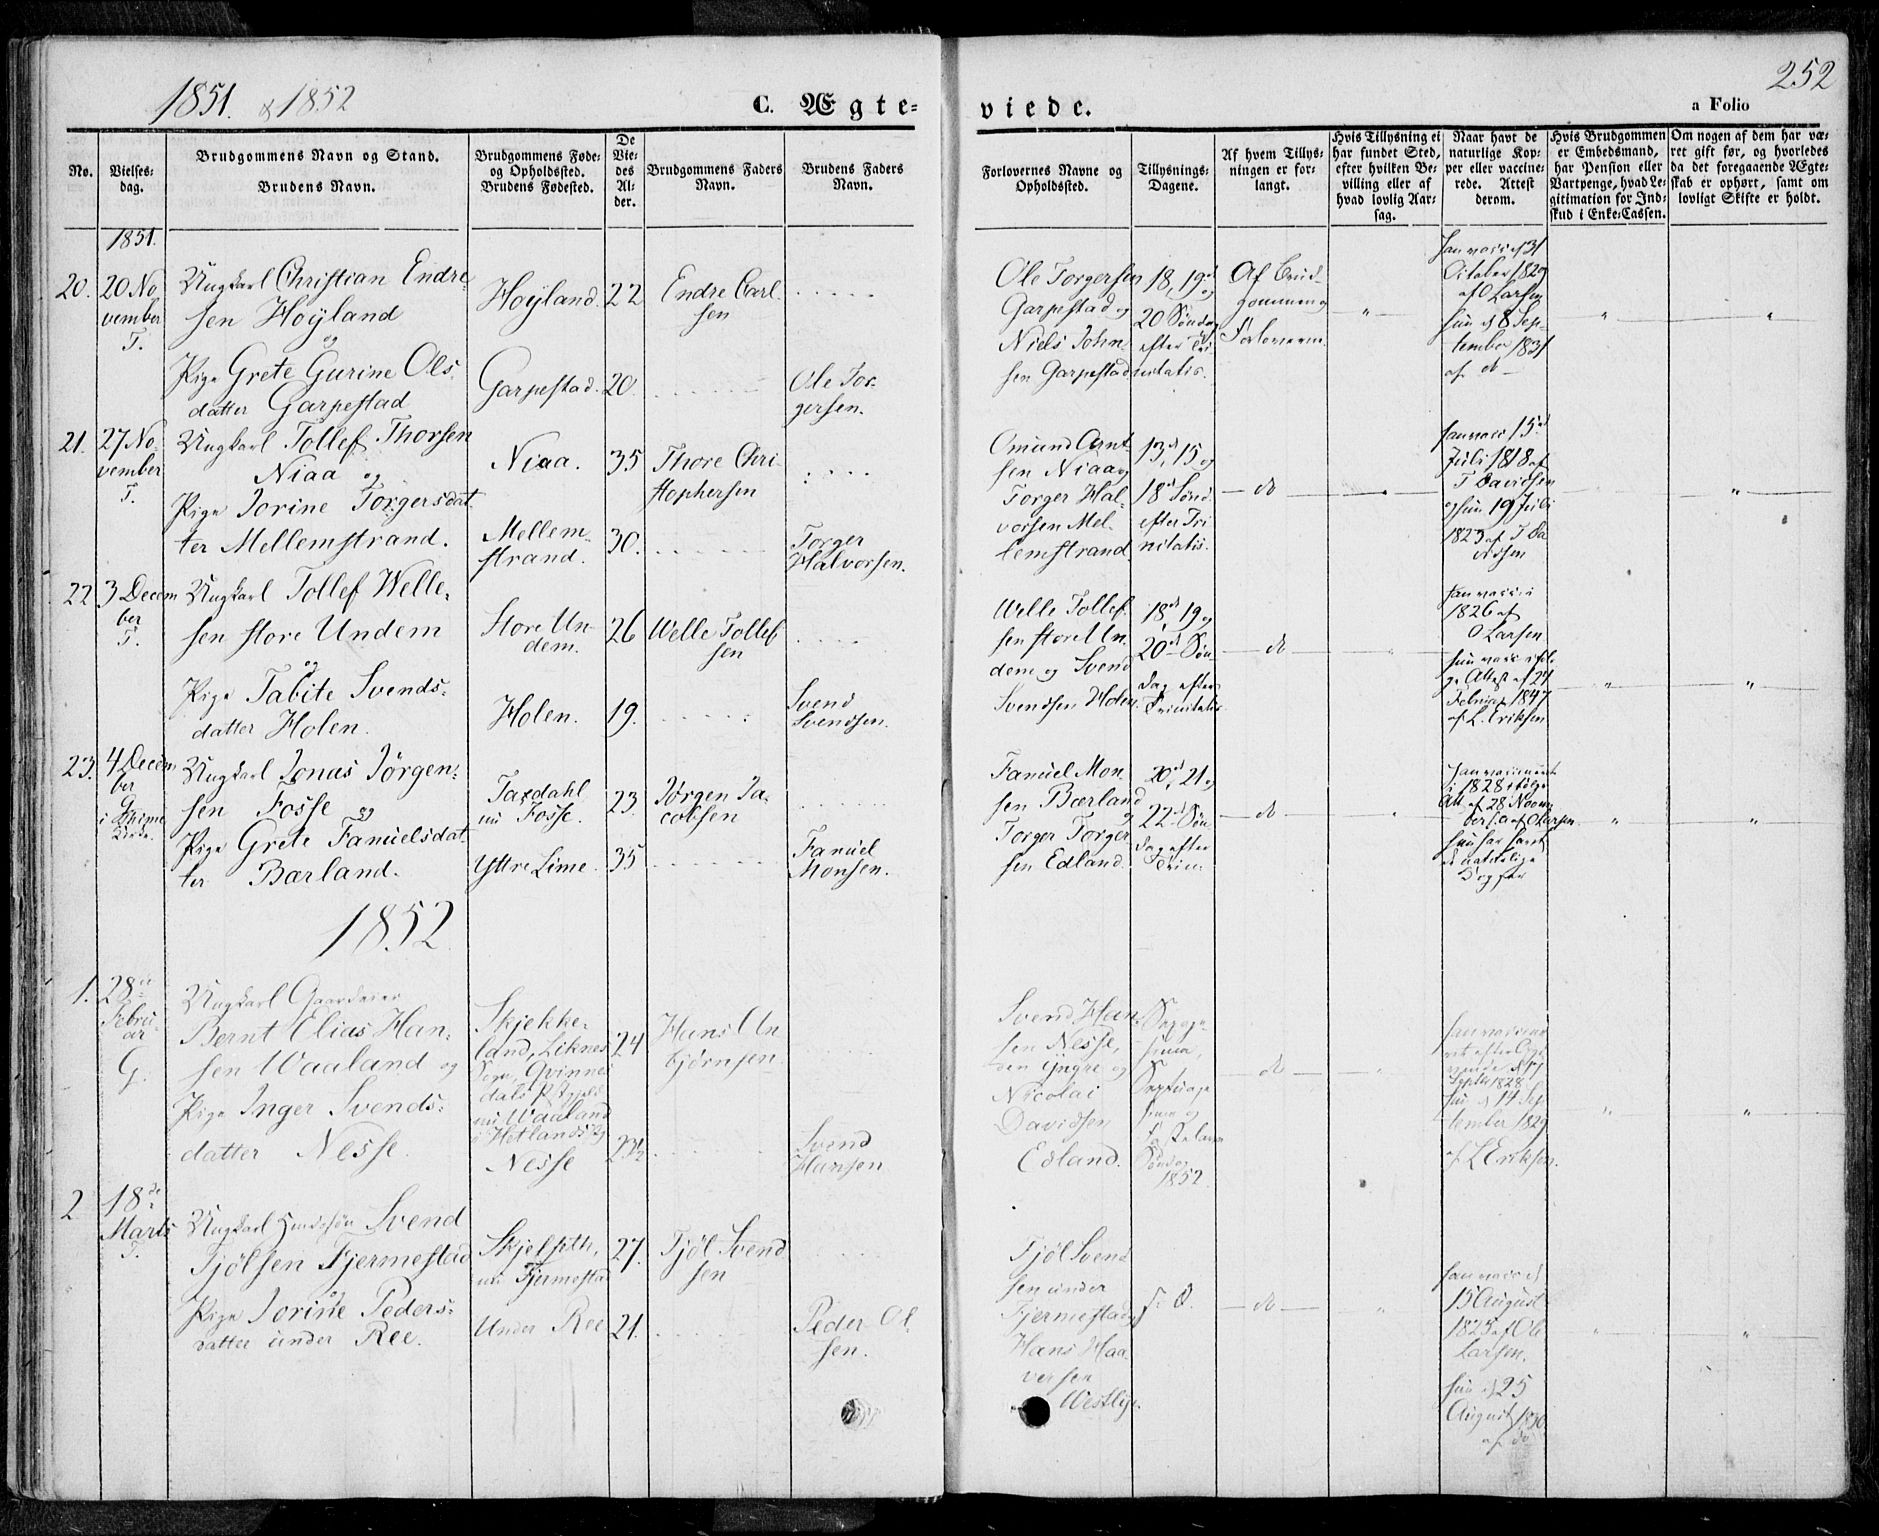 1851. & 1852
C. Ægte-
viede.
252
a Folio
No.
Vielses-
dag.
Brudgommens Navn og Stand.
Brudens Navn.
Brudgommens Føde-
og Opholdssted.
Brudens Fødested.
De
Vie-
des
Al-
der.
Brudgommens Faders
Navn.
Brudens Faders
Navn.
Forlovernes Navne og
Opholdssted.
Tillysnings-
Dagene.
Af hvem Tillys-
ningen er for-
langt.
Hvis Tillysning ei
har fundet Sted,
efter hvilken Be-
villing eller af
hvad lovlig Aar-
sag.
Naar havt de
naturlige Kop-
per eller vaccine-
rede. Attest
derom.
Hvis Brudgommen
er Embedsmand,
har Pension eller
Vartpenge, hvad Le-
gitimation for Ind-
skud i Enke-Cassen.
Om nogen af dem har væ-
ret gift før, og hvorledes
da det foregaaende Ægte-
skab er ophørt, samt om
lovligt Skifte er holdt.
1851.
20.
20 No
vember
T.
Ungkarl Christian Endre
sen Høyland
og
Pige Grete Gurine Ols
datter Garpestad
Høyland.
Garpestad.
22
20.
Endre Carl
sen
Ole Tor
gersen.
Ole Torgersen
Garpestad og
Niels John-
sen Garpestad
18, 19de og
20 Søndag
efter Tri
nitatis.
Af Brud
gommen og
Forloverne
han vacc. d 31
October 1829
af O Larsen
hun d 8 Sep-
tember 1831
af do
21.
27 No
vember
T.
Ungkarl Tollef Thorsen
Niaa og
Pige Jorine Torgersdat
ter Mellemstrand.
Niaa.
Mellem-
strand.
35
30.
Thore Chri
stophersen
Torger
Halvorsen.
Omund Arnt
sen Niaa og
Torger Hal
vorsen Mel-
lemstrand
13d, 15 og
18d Sønd.
efter Tri
nitatis.
do
han vacc 15d
Juli 1818 af
T Davidsen
og hun 19 Juli
1823 af T Da
vidsen
22
3 Decem
ber
T.
Ungkarl Tollef Welle-
sen store Undem
og
Pige Tabite Svends-
datter Holen.
Store Un-
dem.
Holen.
26
19.
Welle Tollef
sen
Svend
Svendsen.
Welle Tollef
sen store Un
dem og Svend
Svendsen Holen
18d, 19 og
20d Søn
dag efter
Trinitatis
do
han vacc i
1826 af
O Larsen
hun vacc iføl
ge Attest af 24
Februar 1847
af L. Eriksen
23.
4 Decem
ber
G
i Thime
Kirke.
Ungkarl Jonas Jørgen-
sen Fosse og
Pige Grete Fanuelsdat
ter Bærland.
Taxdahl
nu Fosse.
Yttre Lime.
23
35
Jørgen Ja-
cobsen
Fanuel
Monsen.
Fanuel Mon
sen Bærland
og
Torger Torger
sen Edland
20d, 21 og
22d Søn
dag efter
Trin
do
han vaccineret
i 1828 ifølge
Att. af 28 Novem
ber s.a. af O Larsen.
hun har havt
de naturlige
Kopper
1852
1.
28de
Febru
ar
G.
Ungkarl Gaardeier
Bernt Elias Han-
sen Waaland og
Pige Inger Svends-
datter Nesse.
Skjekke-
land, Liknes
Sogn, Qvinnes
dals Pstgjeld
nu Waaland
i Hetlands Sg
Nesse
24
23½
Hans Un
bjørnsen
Svend
Hansen
Svend Han
sen Nesse,
den yngre og
Nicolai
Davidsen
Edland.
Sexage
sima,
Septuage
sima og
Fastelavn
Søndag
1852.
do
Septbr 1828
hun d 14 Sep
tember 1829
af L Eriksen.
2
18de
Marts
T.
Ungkarl Huusføn Svend
Tjølsen Fjermestad
og
Pige Jorine Peders-
datter under Ree.
Skjelseth,
nu Fjermestad
Under Ree
27.
21.
Tjøl Svend
sen
Peder Ol
sen.
Tjøl Svend
sen under
Fjermestad og
Hans Haa
versen
Westlye.
do
han vacc d
15 August
1825 af Ole
Larsen.
hun d 25
August 1830
af do